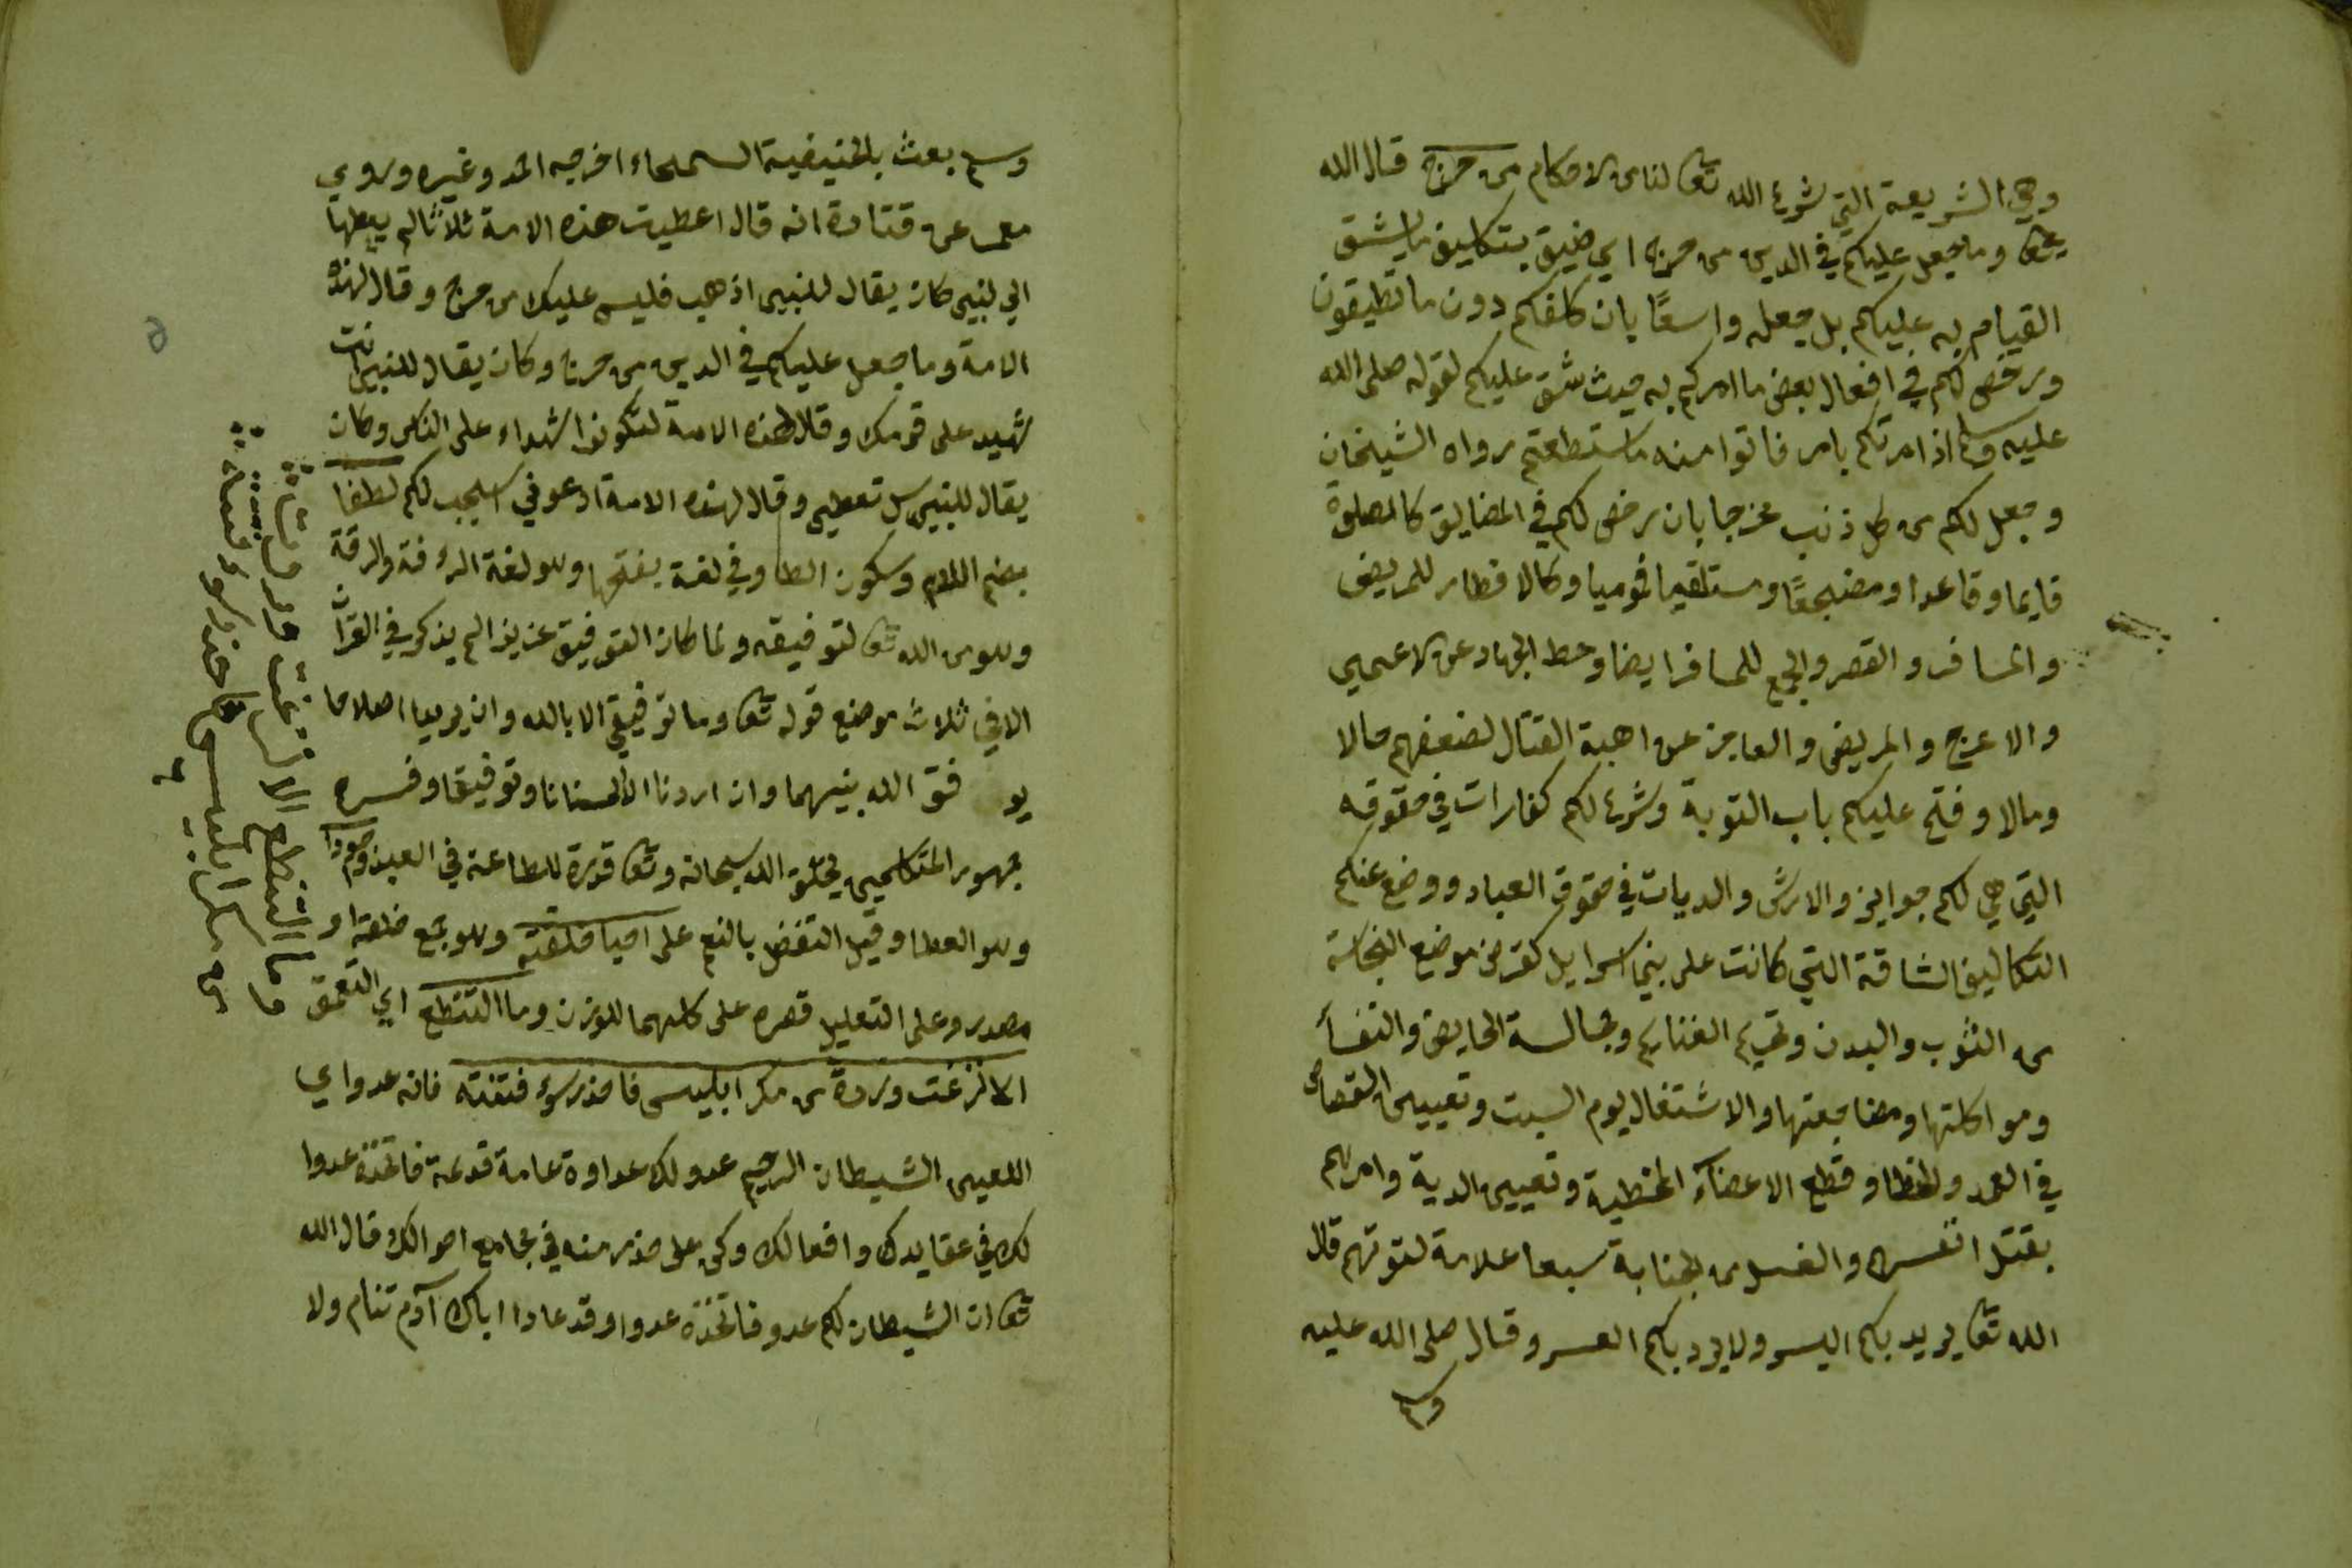 وهي الشريعة التي شرع الله تعا لنا من الاحكام من حرج قال الله
تعا وما جعل عليكم في الدين من حرج اي ضيق بتكليف ما يشق
القيام به عليكم بل جعله واسعًا بان كلفكم دون ما تطيقون
ورخص لكم في افعال بعض ما امركم به حيث شق عليكم لقوله صلى الله
عليه وسلم اذ امرتكم بامر فاتوا منه ما ستطعتم رواه الشيخان
وجعل لكم من كل ذنب مخرجا بان رخص لكم في المضايق كالصلوة
قايما وقاعدا ومضجعًا ومستلقيا فموميا وكالافطار للمريض
والمسافر والقصر والجمع للمسافر ايضا وحط الجهاد عن الاعمى
والاعرج والمريض والعاجز عن اهبة القتال لضعفهم حالا
ومالا وفتح عليكم باب التوبة وشرع لكم كفارات في حقوقه
التي هي لكم جوابز والارش والديات في حقوق العباد ووضع عنكم
التكاليف الشاقة التي كانت على بني اسرايل كقرض موضع النجاسة
من الثوب والبدن وتحريم الغنايم ومجالسة الحايض والنفسأ
ومواكلتها ومضاجعتها والاشتغال يوم السبت وتعيين القصاص
في العمد والخطا وقطع الاعضاء المخطية وتعيين الدية وامرهم
بقتل انفسهم والغسل من الجنابة سبعا علامة لتوبتهم قال
الله تعا يريد بكم اليسر ولا يريد بكم العسر وقال صلى الله عليه
وسلم
وسلم بعثت بالحنيفية السمحاء اخرجه احمد وغيره وروي
معمر عن قتادة انه قال اعطيت هذه الامة ثلاثًا لم يعطها
الي لنبي كان يقال للنبي اذهب فليس عليك من حرج وقال لهذه
الامة وما جعل عليكم في الدين من حرج وكان يقال للنبي انت
شهيد على قومك وقال لهذه الامة لتكونوا شهداء على الناس وكان
يقال للنبي سل تعطى وقال لهذه الامة ادعوني استجب لكم لطفا
بضم اللام وسكون الطا وفي لغة بفتحها وهو لغة الرءفة والرقة
وهو من الله تعا لتوفيقه ونما كان التوفيق عزيزا لم يذكر في القرآن
الا في ثلاث موضع قوله تعا وما توفيقي الا بالله وان يريدا اصلاحا
يو فق الله بينهما وان اردنا الا احسنانا وتوفيقا وفسره
جمهور المتكلمين بخلق الله سبحانه وتعا قدرة للطاعة في العبد وجودا
وهو العطا وقيل التفضل بالنعم على احيا خلقته وهو جمع خلقة او
مصدر وعلى التعليل قصره على كلهما للوزن وما التنطع اي التعمق
الا نزغت وردة من مكر ابليس فاحذر سوء فتنته فانه عدو اي
اللعين الشيطان الرجيم عدو لك عداوة عامة قدمة فاتخذه عدوا
لك في عقايدك وافعالك وكن على حذر منه في مجامع احوالك قال الله
تعا ان الشيطان لكم عدو فاتخذه عدوا وقد عادا اباك آدم تنام ولا
وما التنطع الا نزغت وردت
من مكر ابليس فاحذر سوء فتنته
6